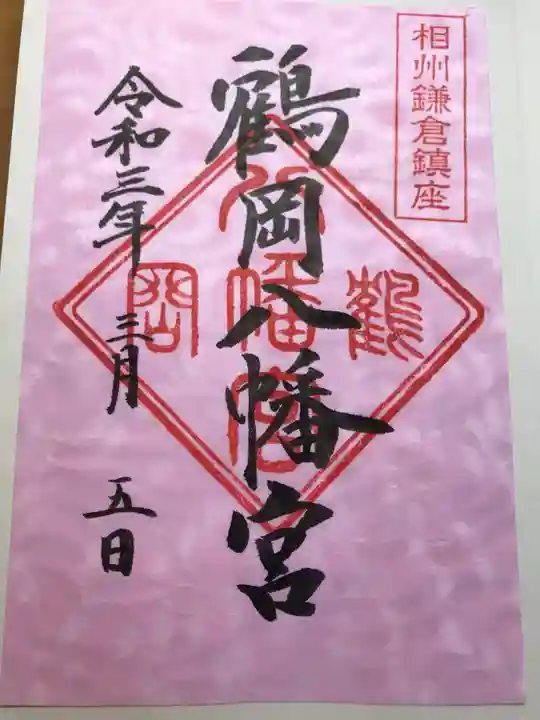 相州鎌倉鎮座
鶴岡八幡宮
鶴
八幡宮
岡
令和三年 三月 五日